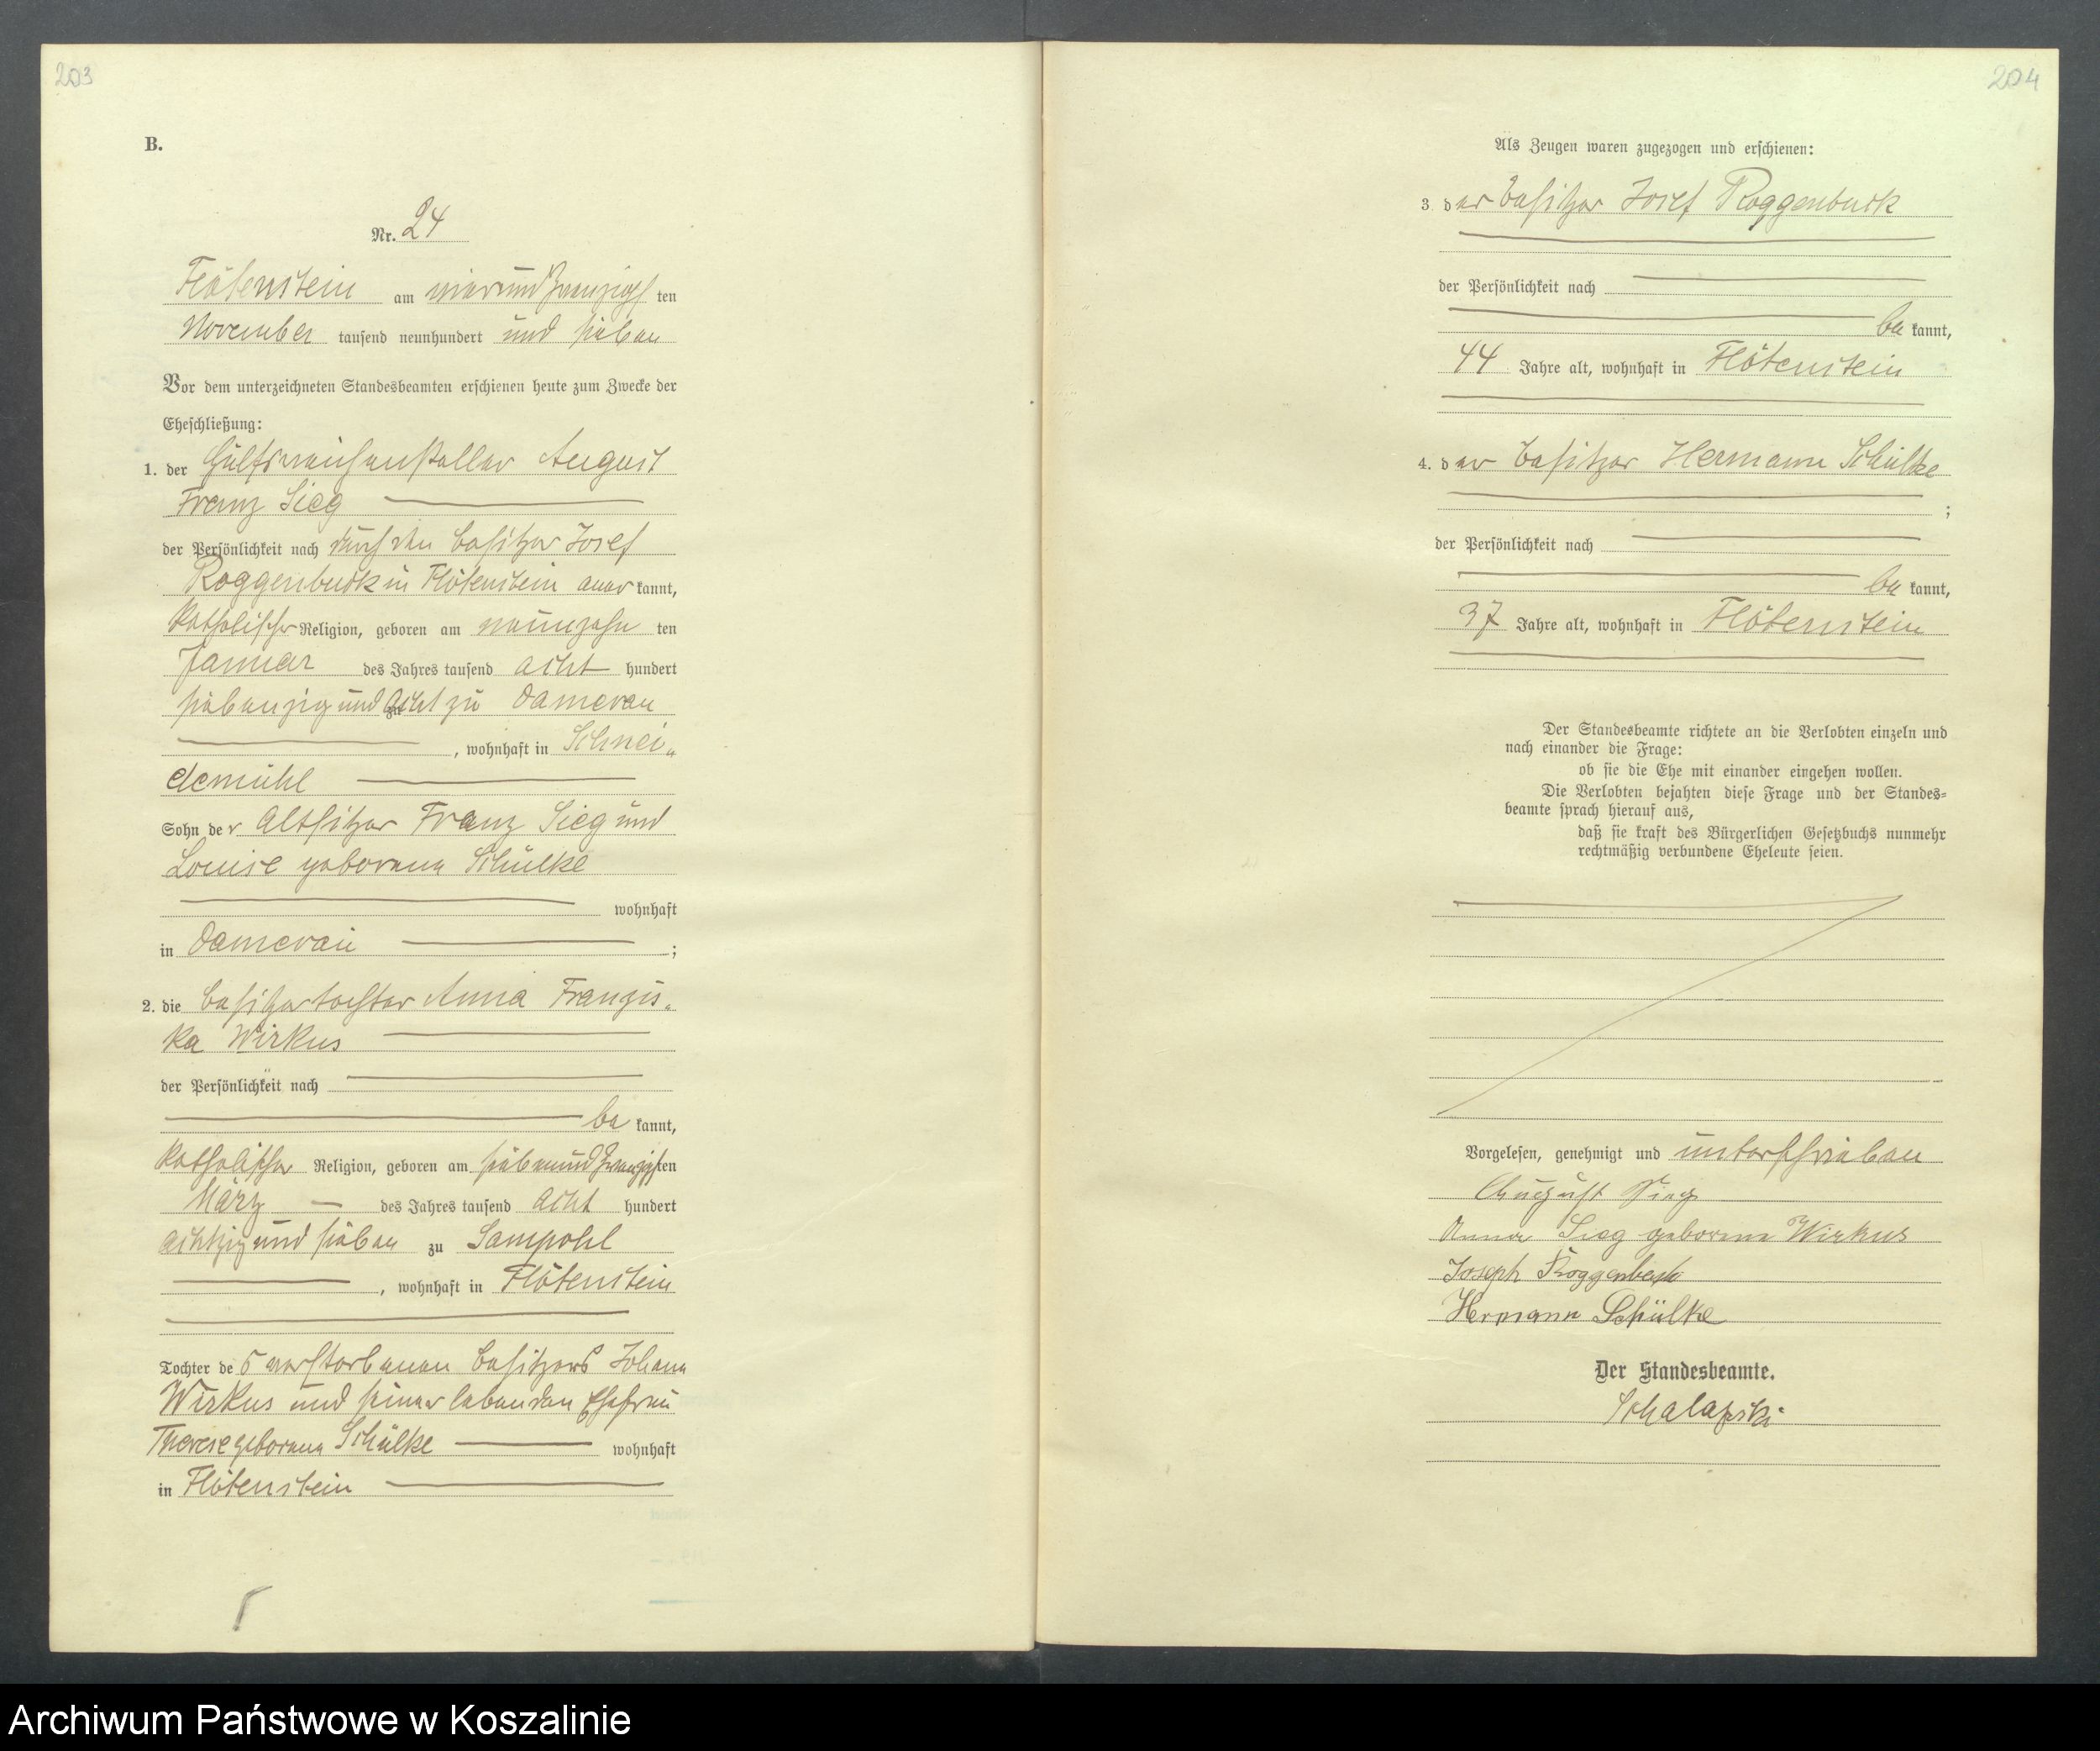 203
B.
Nr. 24
Flötenstein am vierundzwanzigsten
November tausend neunhundert und sieben
Vor dem unterzeichneten Standesbeamten erschienen heute zum Zwecke der
Eheschließung:
1. der Hülfsweichensteller August
Franz Sieg
der Persönlichkeit nach durch den Besitzer Josef
Roggenbuck in Flötenstein anerkannt,
katholischer Religion, geboren am neunzehnten
Januar des Jahres tausend acht hundert
siebenzig und acht zu Damerau
, wohnhaft in Schnei„
demühl
Sohn der Altsitzer Franz Sieg und
Louise geborene Schülke
wohnhaft
in Damerau ;
2. die Besitzertochter Anna Franzis„
ka Wirkus
der Persönlichkeit nach
bekannt,
katholischer Religion, geboren am siebenundzwanzigsten
März des Jahres tausend acht hundert
achtzig und sieben zu Sampohl
, wohnhaft in Flötenstein
Tochter des verstorbenen Besitzers Johann
Wirkus und seiner lebenden Ehefrau
Therese geborene Schülke wohnhaft
in Flötenstein
204
Als Zeugen waren zugezogen und erschienen:
3. der Besitzer Josef Roggenbuck
der Persönlichkeit nach
bekannt,
44 Jahre alt, wohnhaft in Flötenstein
4. der Besitzer Hermann Schülke
;
der Persönlichkeit nach
bekannt,
37 Jahre alt, wohnhaft in Flötenstein
Der Standesbeamte richtete an die Verlobten einzeln und
nach einander die Frage:
ob sie die Ehe mit einander eingehen wollen.
Die Verlobten bejahten diese Frage und der Standes=
beamte sprach hierauf aus,
daß sie kraft des Bürgerlichen Gesetzbuchs nunmehr
rechtmäßig verbundene Eheleute seien.
Vorgelesen, genehmigt und unterschrieben
August Sieg
Anna Sieg geborene Wirkus
Joseph Roggenbuck
Hermann Schülke
Der Standesbeamte.
Archiwum Państwowe w Koszalinie